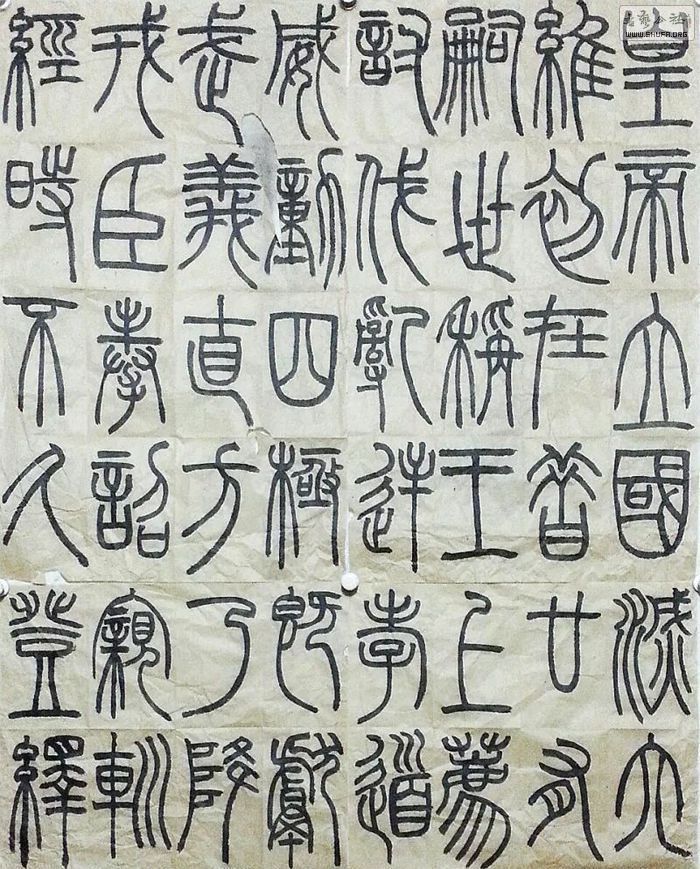 皇帝立國
維初在昔
嗣世稱王
討伐亂逆
威動四極
武義直方
戎臣奉詔
經時不久
滅六
廿有
上薦
孝道
既獻
乃降
親巡
登繹
书艺公社
WWW.SHUFA.ORG